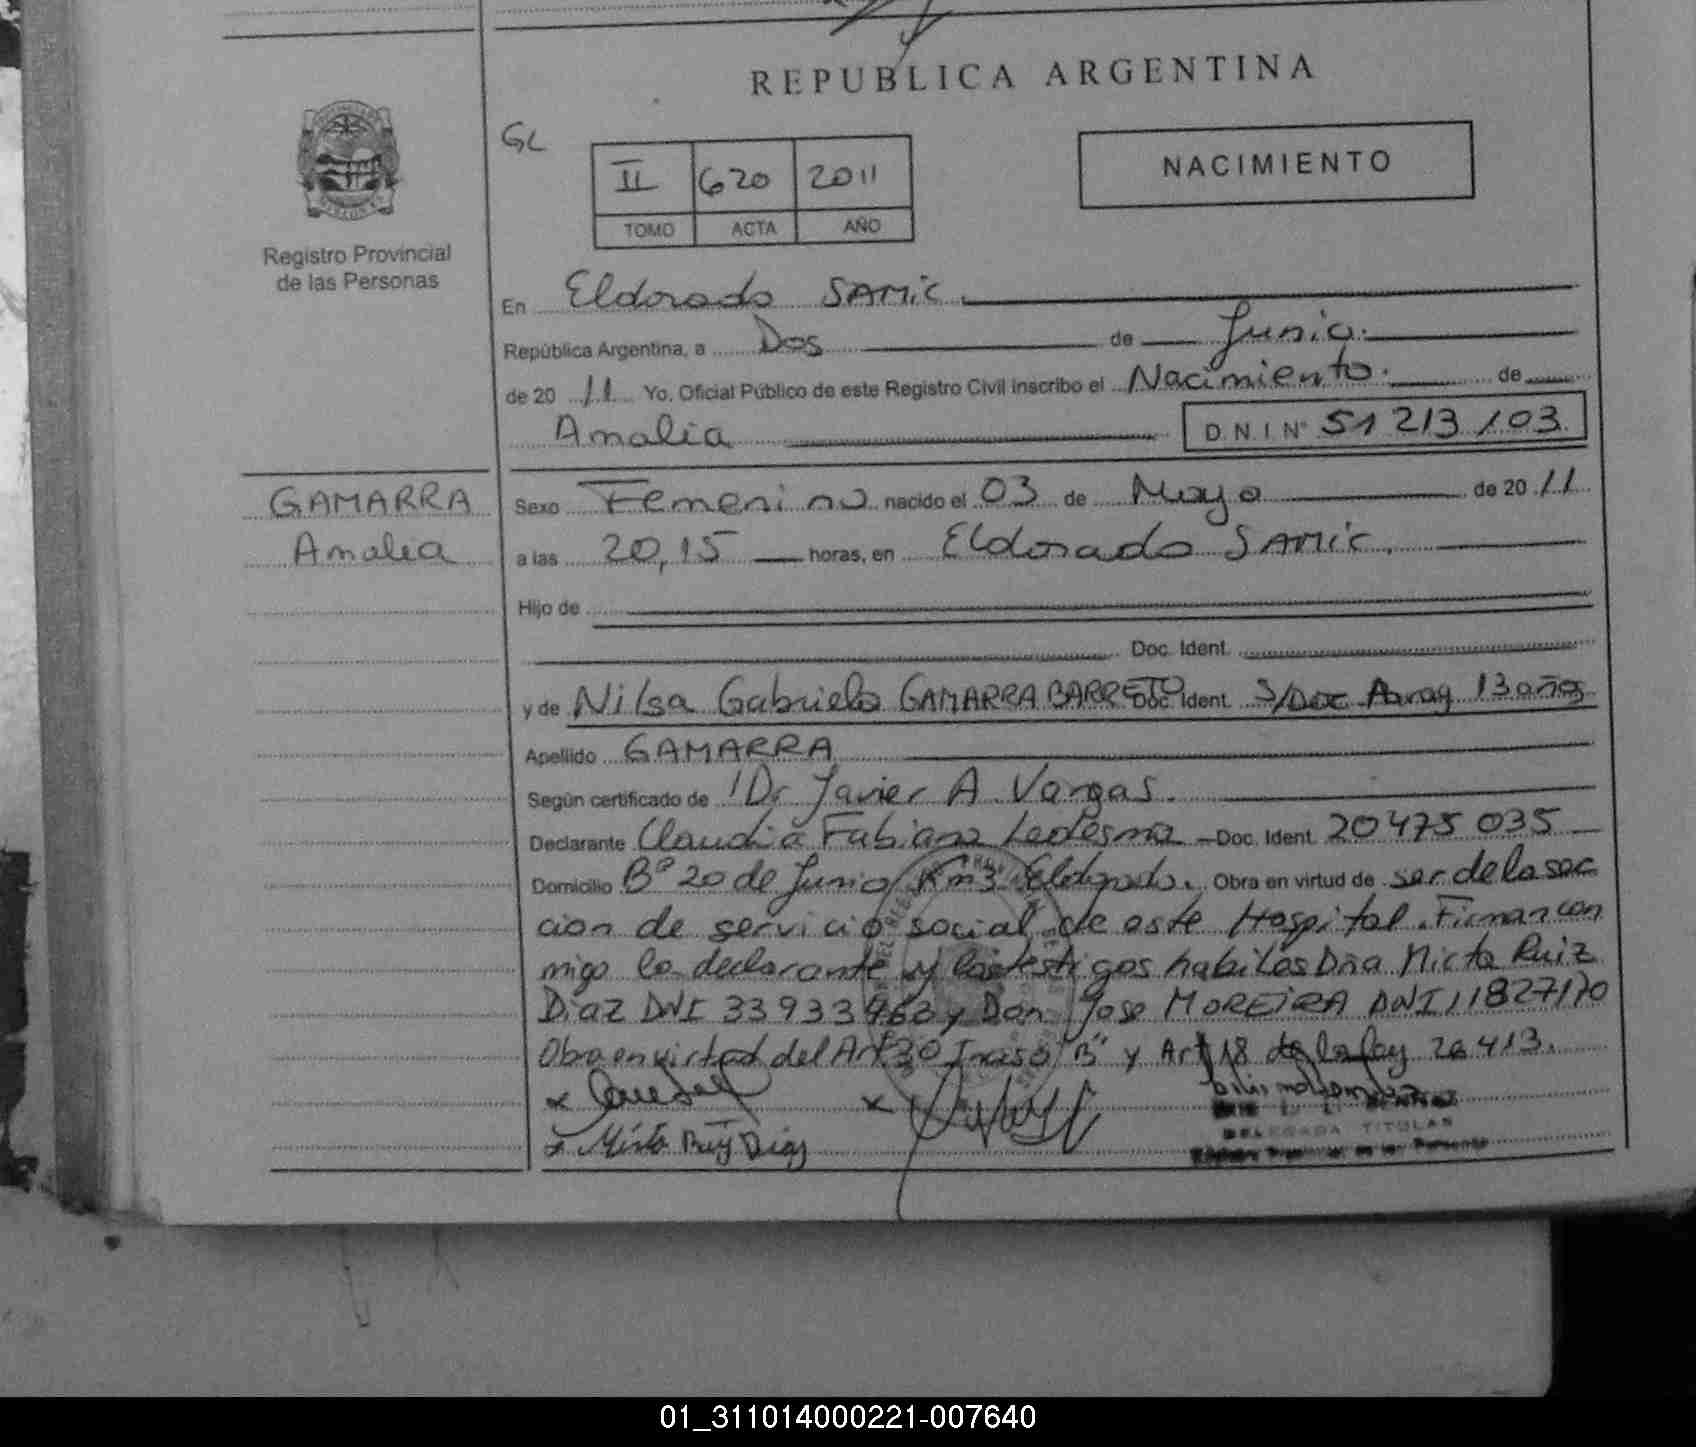 REPUBLICA ARGENTINA
GL
II 620 2011
TOMO ACTA AÑO
NACIMIENTO
Registro Provincial
de las Personas
En Eldorado SAMIC.
República Argentina, a Dos de Junio.
de 20 11 Yo. Oficial Público de este Registro Civil inscribo el Nacimiento. de
Amalia D.N.I Nº 51 213 103
GAMARRA
Amalia
Sexo Femenino nacido el 03 de Mayo de 20 11
a las 20,15 horas, en Eldorado SAMIC.
Hijo de
Doc. Ident.
y de Nilsa Gabriela GAMARRA BARRETO Doc. Ident. S/Doc Parag 13 años
Apellido GAMARRA
Según certificado de Dr Javier A Vargas.
Declarante Claudia Fabiana Ledesma Doc. Ident. 20475 035
Domicilio Bº 20 de Junio Km3 Eldorado. Obra en virtud de ser de la sec
cion de servicio social de este Hospital. Firman con
migo la declarante y los testigos habiles Dña Mirta Ruiz
Diaz DNI 33933963 y Don Jose MOREIRA DNI 11827170
Obra en virtud del Art 30 Inciso "B" y Art 18 de la ley 26413.
x
x
x Mirta Ruiz Diaz
DELEGADA TITULAR
01_311014000221-007640